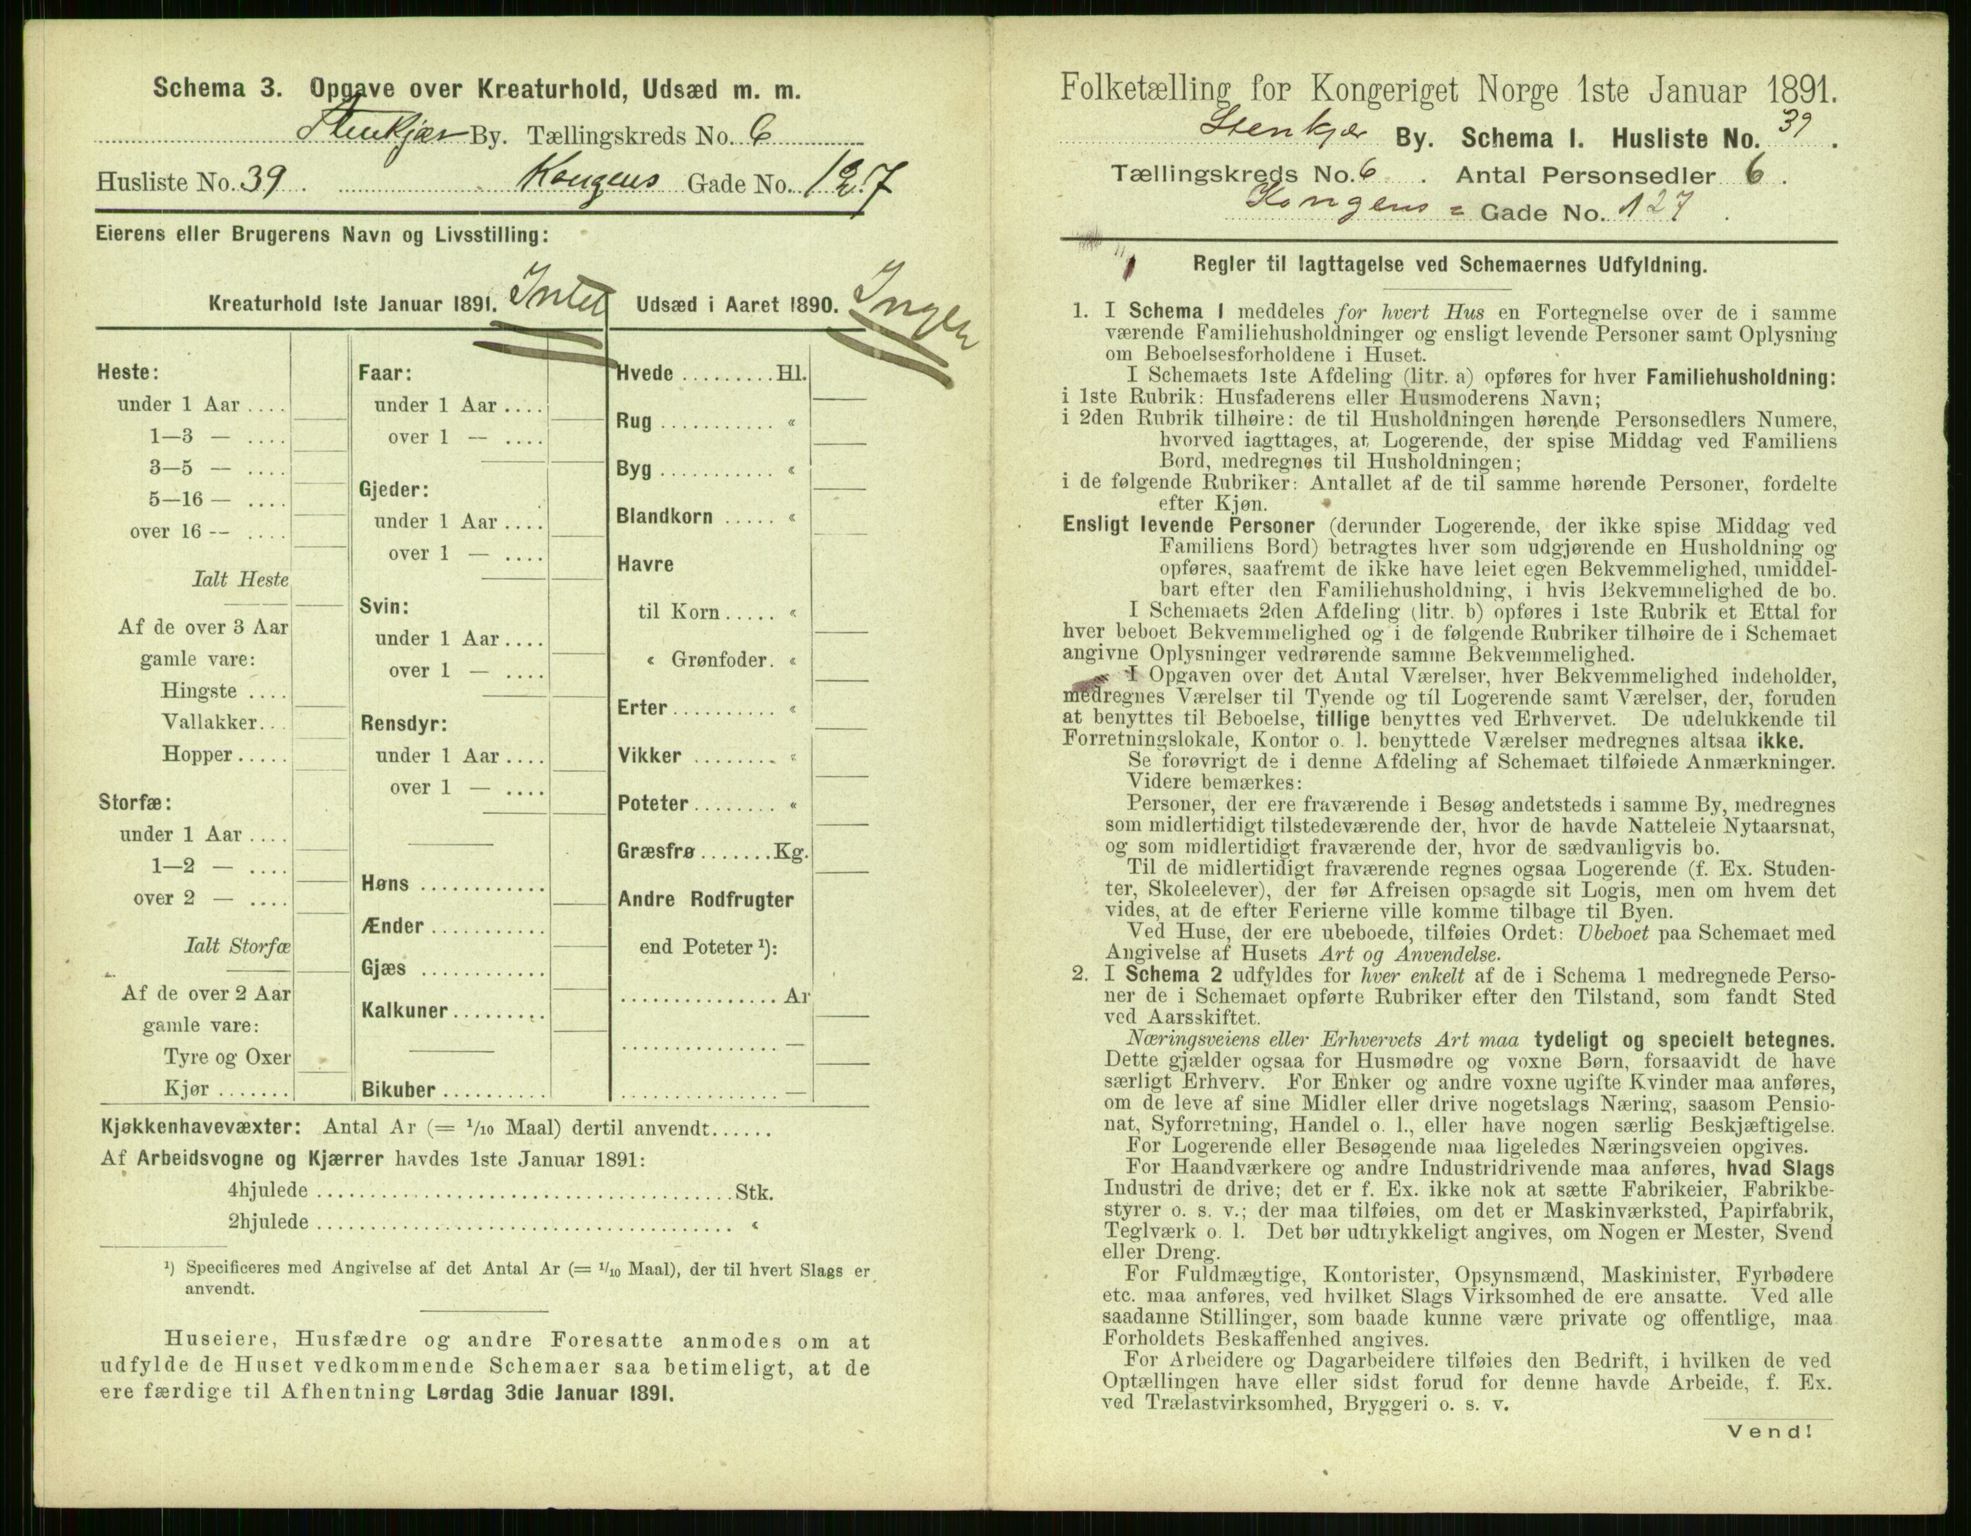 Schema 3. Opgave over Kreaturhold, Udsæd m. m.
Stenkjær By. Tællingskreds No. 6
Husliste No. 39. Kongens Gade No. 127
Eierens eller Brugerens Navn og Livsstilling:
Kreaturhold 1ste Januar 1891. Intet
Heste:
under 1 Aar ....
1—3 — ....
3—5 — ....
5—16 — ....
over 16 -- ....
Ialt Heste
Af de over 3 Aar
gamle vare:
Hingste ....
Vallakker...
Hopper.....
Storfæ:
under 1 Aar ....
1—2 — ....
over 2 — ....
Ialt Storfæ
Af de over 2 Aar
gamle vare:
Tyre og Oxer
Kjør .......
Faar:
under 1 Aar ....
over 1 — ....
Gjeder:
under 1 Aar ....
over 1 — ....
Svin:
under 1 Aar ....
over 1 — ....
Rensdyr:
under 1 Aar ....
over 1 — ....
Høns ............
Ænder ...........
Gjæs ............
Kalkuner.........
Bikuber ..........
Udsæd i Aaret 1890. Ingen
Hvede ......... Hl.
Rug ........... «
Byg ........... «
Blandkorn ..... «
Havre
til Korn..... «
« Grønfoder. «
Erter.......... «
Vikker ........ «
Poteter........ «
Græsfrø.......Kg.
Andre Rodfrugter
end Poteter ¹):
............... Ar
............... —
............... —
Kjøkkenhavevæxter: Antal Ar (= 1/10 Maal) dertil anvendt......
Af Arbeidsvogne og Kjærrer havdes 1ste Januar 1891:
4hjulede ....................................... Stk.
2hjulede ....................................... «
¹) Specificeres med Angivelse af det Antal Ar (= 1/10 Maal), der til hvert Slags er
anvendt.
Huseiere, Husfædre og andre Foresatte anmodes om at
udfylde de Huset vedkommende Schemaer saa betimeligt, at de
ere færdige til Afhentning Lørdag 3die Januar 1891.
Folketælling for Kongeriget Norge 1ste Januar 1891.
Stenkjær By. Schema 1. Husliste No. 39.
Tællingskreds No. 6. Antal Personsedler 6.
Kongens = Gade No. 127.
Regler til Iagttagelse ved Schemaernes Udfyldning.
1. I Schema 1 meddeles for hvert Hus en Fortegnelse over de i samme
værende Familiehusholdninger og ensligt levende Personer samt Oplysning
om Beboelsesforholdene i Huset.
I Schemaets 1ste Afdeling (litr. a) opføres for hver Familiehusholdning:
i 1ste Rubrik: Husfaderens eller Husmoderens Navn;
i 2den Rubrik tilhøire: de til Husholdningen hørende Personsedlers Numere,
hvorved iagttages, at Logerende, der spise Middag ved Familiens
Bord, medregnes til Husholdningen;
i de følgende Rubriker: Antallet af de til samme hørende Personer, fordelte
efter Kjøn.
Ensligt levende Personer (derunder Logerende, der ikke spise Middag ved
Familiens Bord) betragtes hver som udgjørende en Husholdning og
opføres, saafremt de ikke have leiet egen Bekvemmelighed, umiddel-
bart efter den Familiehusholdning, i hvis Bekvemmelighed de bo.
I Schemaets 2den Afdeling (litr. b) opføres i 1ste Rubrik et Ettal for
hver beboet Bekvemmelighed og i de følgende Rubriker tilhøire de i Schemaet
angivne Oplysninger vedrørende samme Bekvemmelighed.
I Opgaven over det Antal Værelser, hver Bekvemmelighed indeholder,
medregnes Værelser til Tyende og til Logerende samt Værelser, der, foruden
at benyttes til Beboelse, tillige benyttes ved Erhvervet. De udelukkende til
Forretningslokale, Kontor o. l. benyttede Værelser medregnes altsaa ikke.
Se forøvrigt de i denne Afdeling af Schemaet tilføiede Anmærkninger.
Videre bemærkes:
Personer, der ere fraværende i Besøg andetsteds i samme By, medregnes
som midlertidigt tilstedeværende der, hvor de havde Natteleie Nytaarsnat,
og som midlertidigt fraværende der, hvor de sædvanligvis bo.
Til de midlertidigt fraværende regnes ogsaa Logerende (f. Ex. Studen-
ter, Skoleelever), der før Afreisen opsagde sit Logis, men om hvem det
vides, at de efter Ferierne ville komme tilbage til Byen.
Ved Huse, der ere ubeboede, tilføies Ordet: Ubeboet paa Schemaet med
Angivelse af Husets Art og Anvendelse.
2. I Schema 2 udfyldes for hver enkelt af de i Schema 1 medregnede Perso-
ner de i Schemaet opførte Rubriker efter den Tilstand, som fandt Sted
ved Aarsskiftet.
Næringsveiens eller Erhvervets Art maa tydeligt og specielt betegnes.
Dette gjælder ogsaa for Husmødre og voxne Børn, forsaavidt de have
særligt Erhverv. For Enker og andre voxne ugifte Kvinder maa anføres,
om de leve af sine Midler eller drive nogetslags Næring, saasom Pensio-
nat, Syforretning, Handel o. l., eller have nogen særlig Beskjæftigelse.
For Logerende eller Besøgende maa ligeledes Næringsveien opgives.
For Haandværkere og andre Industridrivende maa anføres, hvad Slags
Industri de drive; det er f. Ex. ikke nok at sætte Fabrikeier, Fabrikbe-
styrer o. s. v.; der maa tilføies, om det er Maskinværksted, Papirfabrik,
Teglværk o. l. Det bør udtrykkeligt angives, om Nogen er Mester, Svend
eller Dreng.
For Fuldmægtige, Kontorister, Opsynsmænd, Maskinister, Fyrbødere
etc. maa anføres, ved hvilket Slags Virksomhed de ere ansatte. Ved alle
saadanne Stillinger, som baade kunne være private og offentlige, maa
Forholdets Beskaffenhed angives.
For Arbeidere og Dagarbeidere tilføies den Bedrift, i hvilken de ved
Optællingen have eller sidst forud for denne havde Arbeide, f. Ex.
ved Trælastvirksomhed, Bryggeri o. s. v.
Vend!